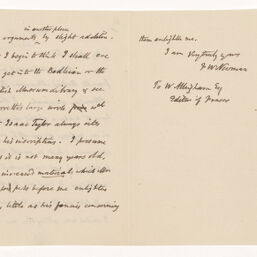 in another place
arguments by slight addition.
I begin to think I shall one
get into the Bodleian or the
Museum library & see
large work with
Isaac Taylor always into
his inscriptions. I presume
it is not many years old,
increased materials, which
puts before me enlighten
little as his forms concerning
them enlighten me.
I am very truly yours
F W Newman
To W. Allingham Esq
Editor of Fraser